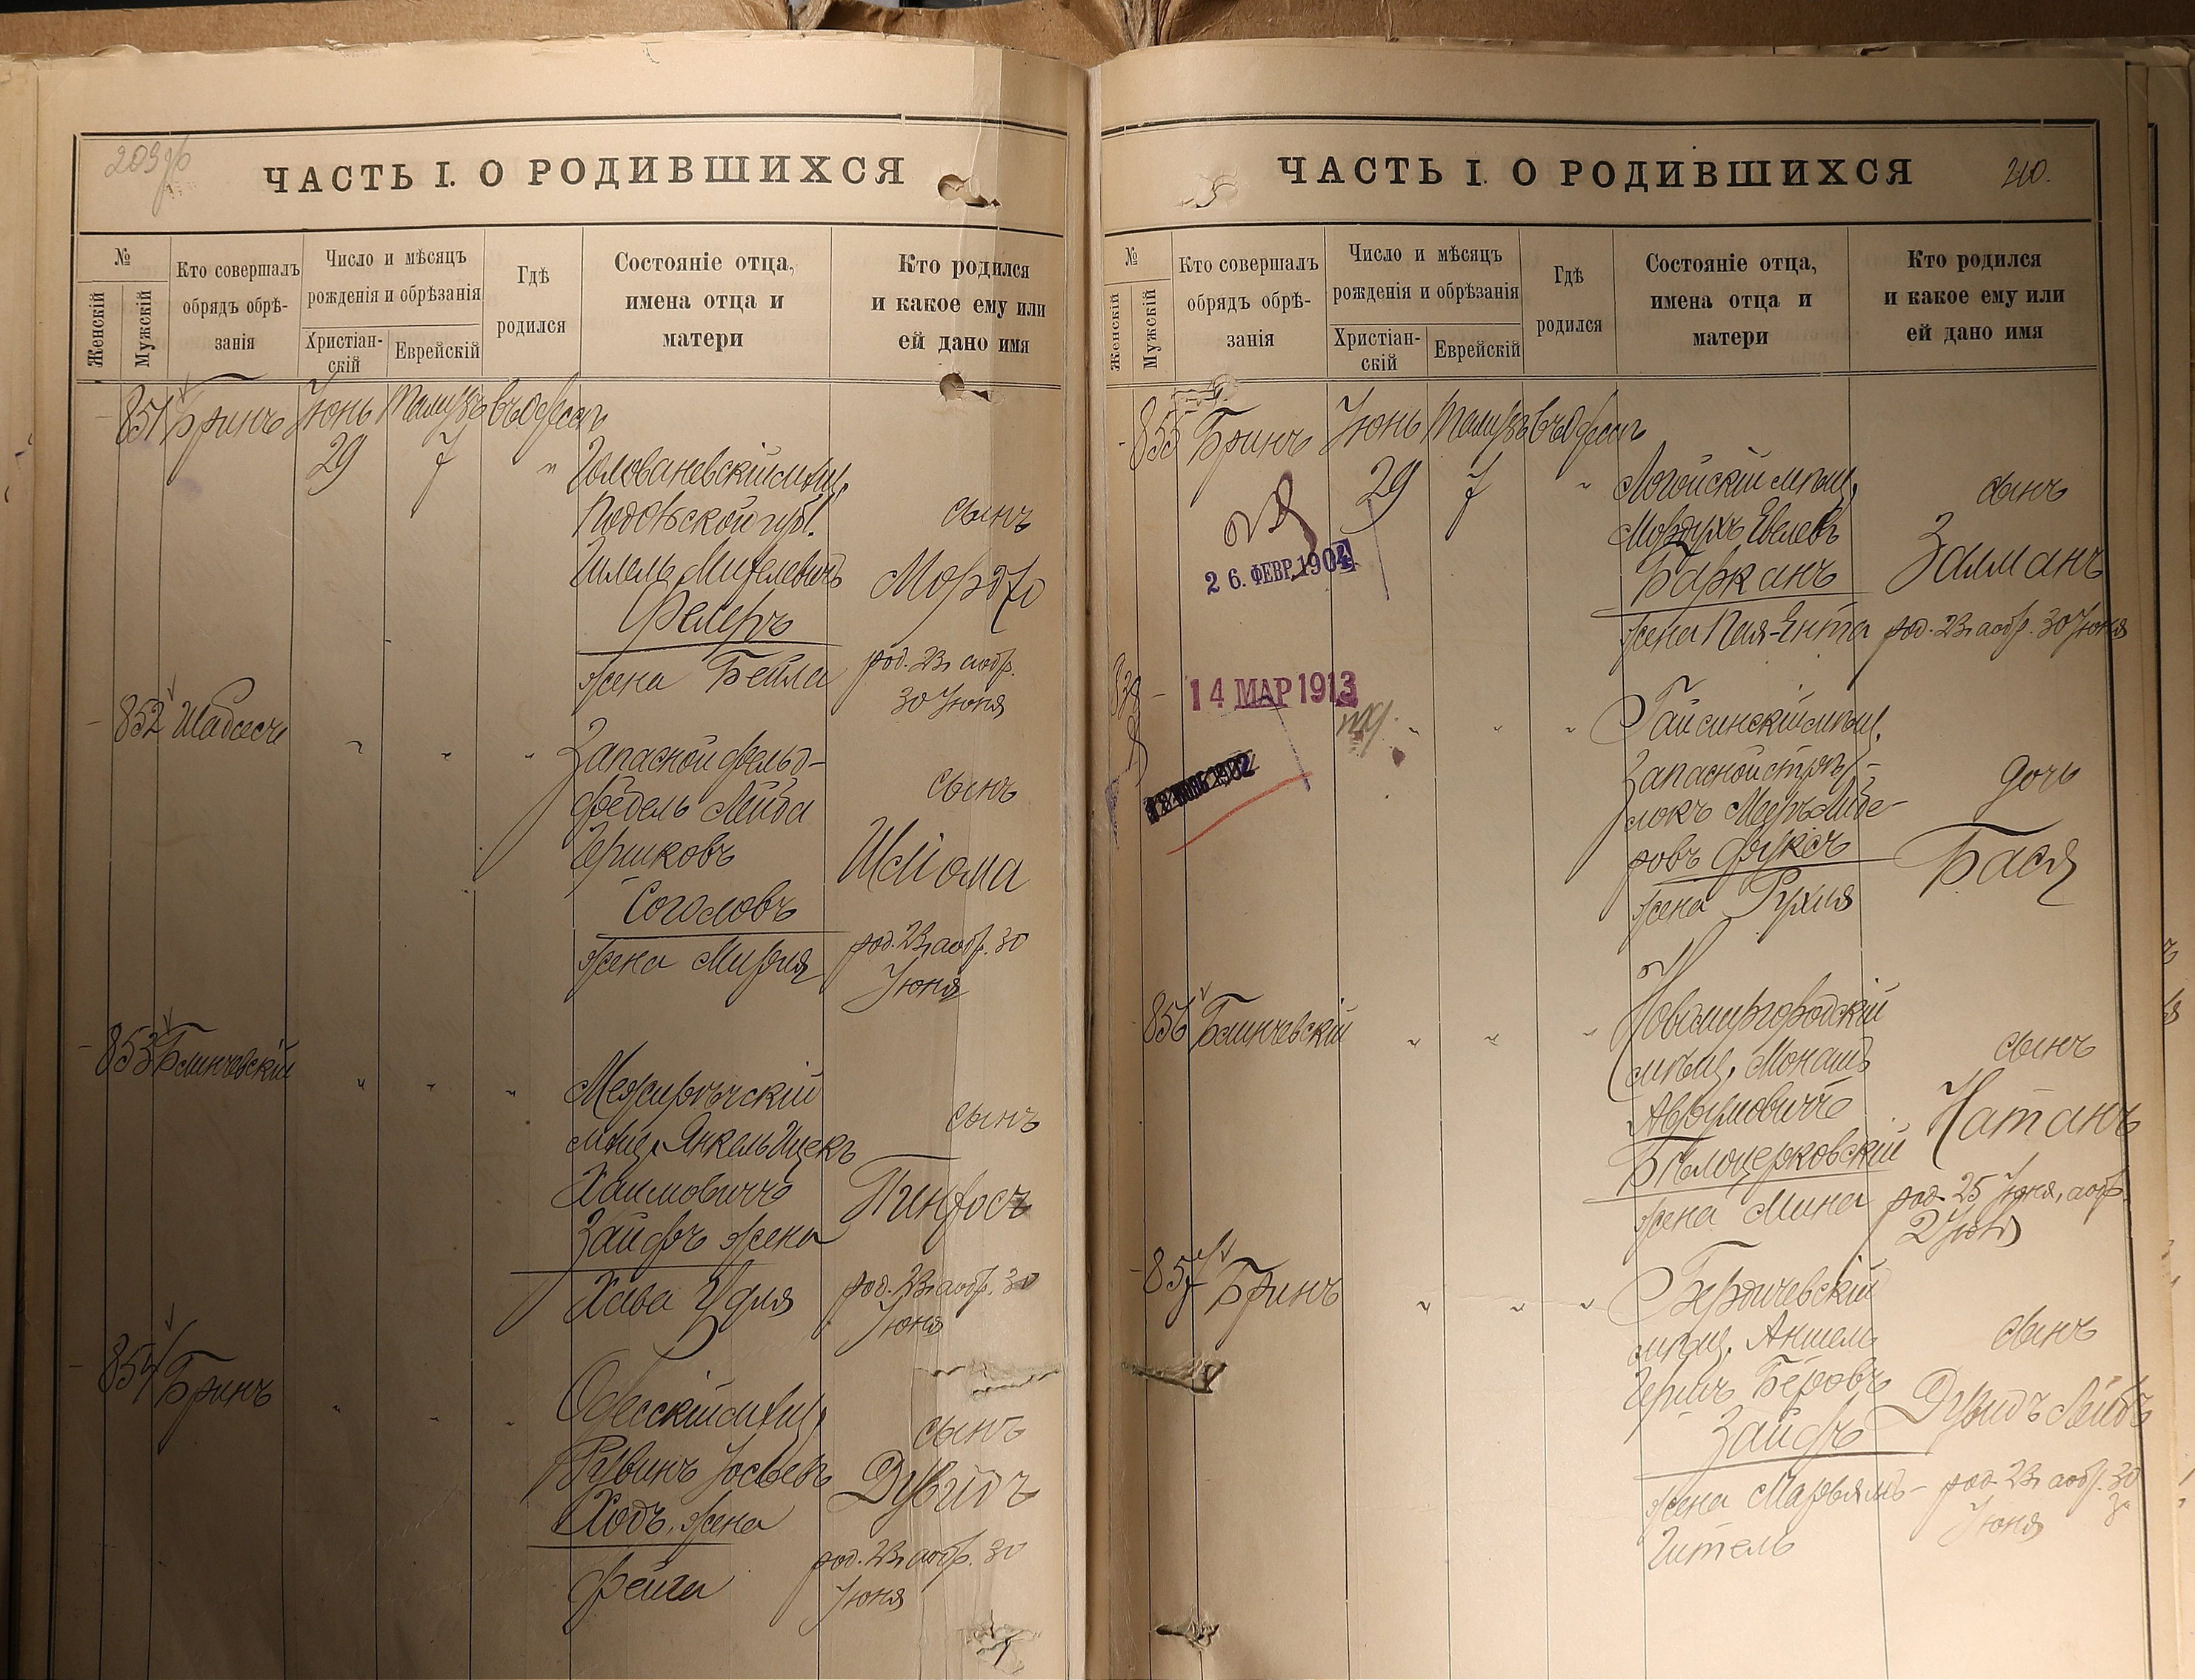 ЧАСТЬ I. О РОДИВШИХСЯ
№
Женскій
Мужскій
Кто совершалъ
обрядъ обрѣ-
занія
Число и мѣсяцъ
рожденія и обрѣзанія
Христіан-
скій
Еврейскій
Гдѣ
родился
Состояніе отца,
имена отца и
матери
Кто родился
и какое ему или
ей дано имя
851 Бринъ Іюнь Тамузъ въ Одессѣ
29 7 "
Голованевскій мѣщ.
Подольской губ.
Гилель
Фелеръ
жена Бейла
сынъ
Мордко
род. 23, а обр.
30 Іюня
852
Запасной фельд-
фебель Лейба
Гершковъ
Соголовъ
жена Мирля
сынъ
Шліома
род. 23, а обр. 30
Іюня
853 Блинчевскій
Межиричскій
мѣщ. Янкель Ицекъ
Хаимовичъ
Зайфъ жена
Хава Удля
сынъ
Пинхосъ
род. 23, а обр. 30
Іюня
854 Бринъ
Одесскій мѣщ.
Рувинъ Іосьевъ
Ходъ, жена
Фейга
сынъ
Дувидъ
род. 23, а обр. 30
Іюня
ЧАСТЬ I. О РОДИВШИХСЯ
210.
№
Женскій
Мужскій
Кто совершалъ
обрядъ обрѣ-
занія
Число и мѣсяцъ
рожденія и обрѣзанія
Христіан-
скій
Еврейскій
Гдѣ
родился
Состояніе отца,
имена отца и
матери
Кто родился
и какое ему или
ей дано имя
855 Бринъ Іюнь Тамузъ въ Одессѣ
29 7 "
26. ФЕВР. 1904
Логойскій мѣщ.
Мордухъ Евелевъ
Барканъ
жена Пая-Ента
сынъ
Залманъ
род. 23, а обр. 30 Іюня
14 МАР 1913
Гайсинскій мѣщ.
Запасной стрѣ-
локъ Мееръ Либе-
ровъ Фуксъ
жена Рухля
дочь
Бася
856 Блинчевскій
Новомиргородскій
мѣщ. Монашъ
Аврумовичъ
Бѣлоцерковскій
жена Мина
сынъ
Натанъ
род. 25 Іюня, а обр.
2 Іюля
857 Бринъ
Бердичевскій
мѣщ. Аншель
Гершъ Беровъ
Зайфъ
жена Марьямъ-
Гитель
сынъ
Дувидъ Лейбъ
род. 23, а обр. 30
Іюня